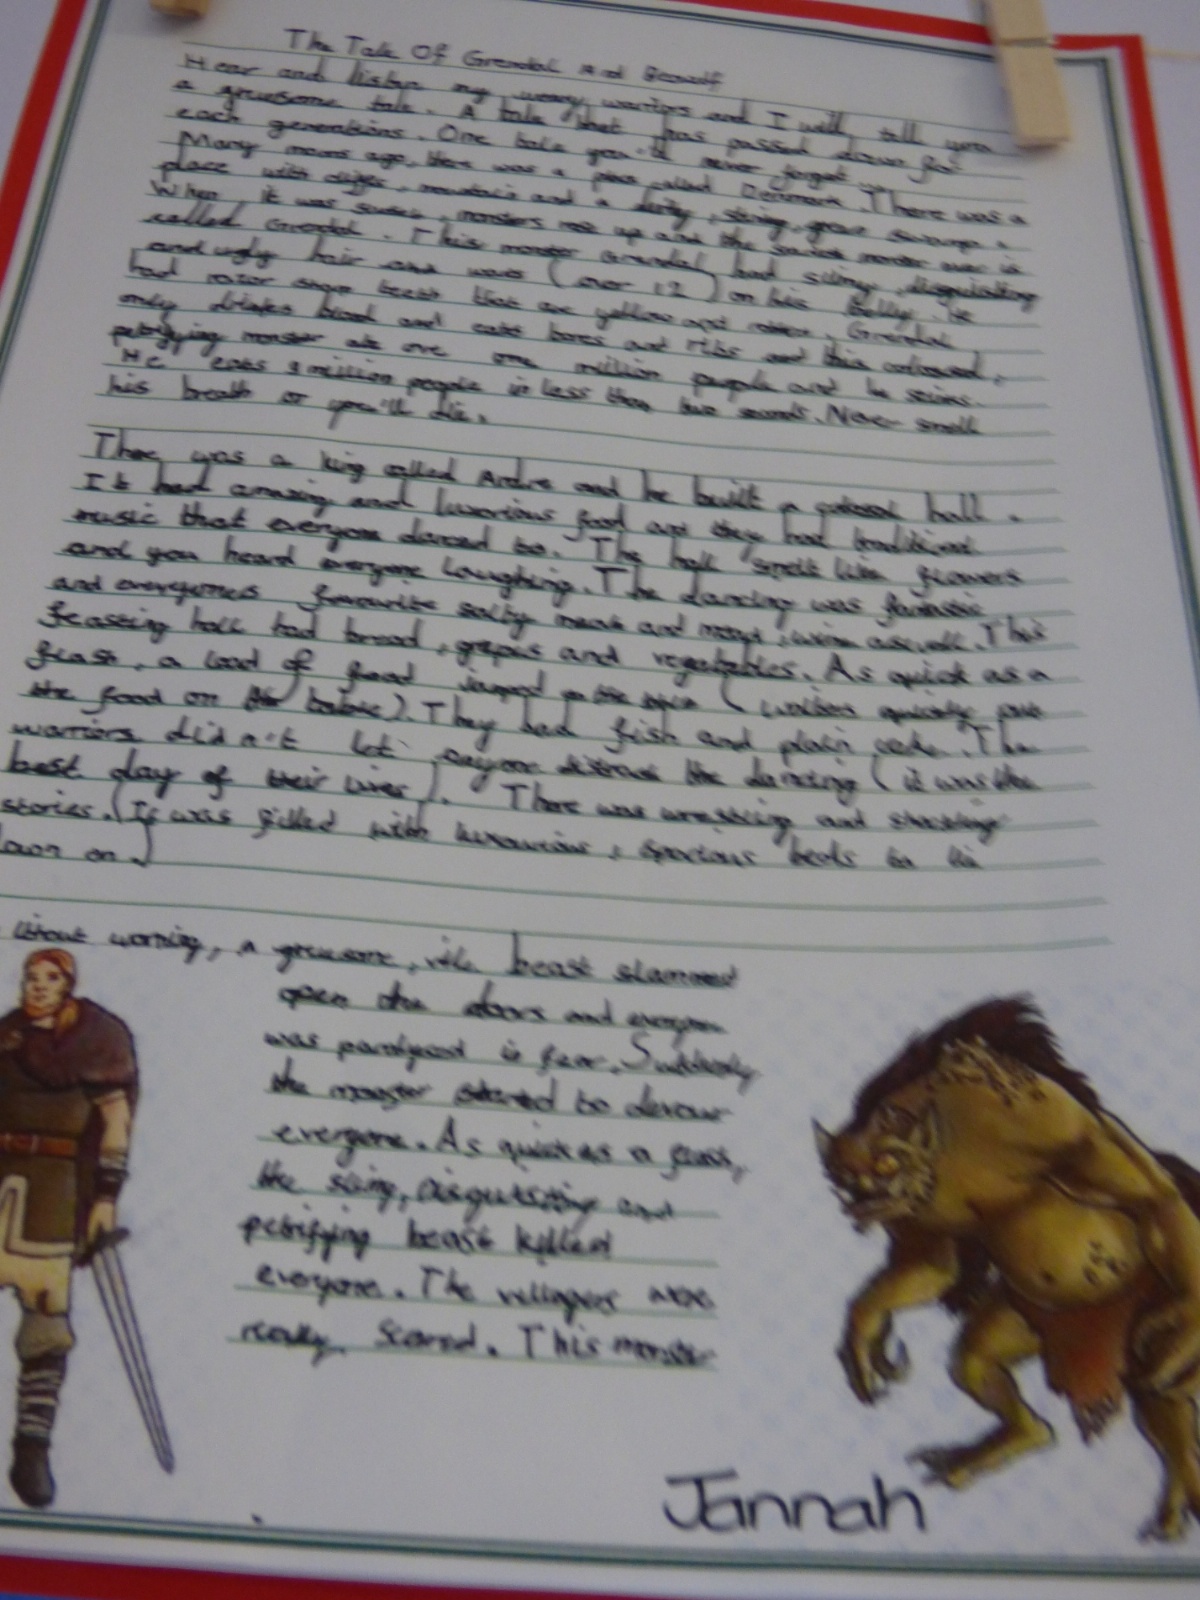 The Tale Of Grendal And Beowulf
Hear and listen my weary warriors and I will tell you
a gruesome tale. A tale that has passed down for
each generations. One tale you'll never forget.
Many moons ago, there was a place called Denmark. There was a
place with cliffs, mountain and a dirty, stinky, swamp.
When it was sunset, monsters rose up and the monster was is
called Grendal. This monster Grendal had slimy, disgusting
and ugly hair and warts (over 12) on his belly. He
had razor sharp teeth that are yellow and rotten. Grendal
only drinks blood and eats bones and ribs and this
petrifying monster ate one million people and he
He eats 9 million people in less than two seconds. Never smell
his breath or you'll die.
There was a king called Andre and he built a hall.
It had amazing and luxurious food and they had traditional
music that everyone danced to. The hall smelt like flowers
and you heard everyone laughing. The dancing was fantastic
and everyones favourite salty meat and wine aswell. This
feasting hall had bread, grapes and vegetables. As quick as a
flash, a load of food jumped on the table (waiters quickly put
the food on the table). They had fish and plain The
warriors didn't let anyone distract the dancing (it was the
best day of their lives). There was wrestling and
stories. (It was filled with luxurious, spacious beds to lie
down on.)
ithout warning, a gruesome, vile beast slammed
open the doors and everyone
was paralysed in fear. Suddenly
the monster started to devour
everyone. As quick as a flash,
the slimy, disgusting and
petrifying beast killed
everyone. The villagers were
really scared. This monster
Jannah